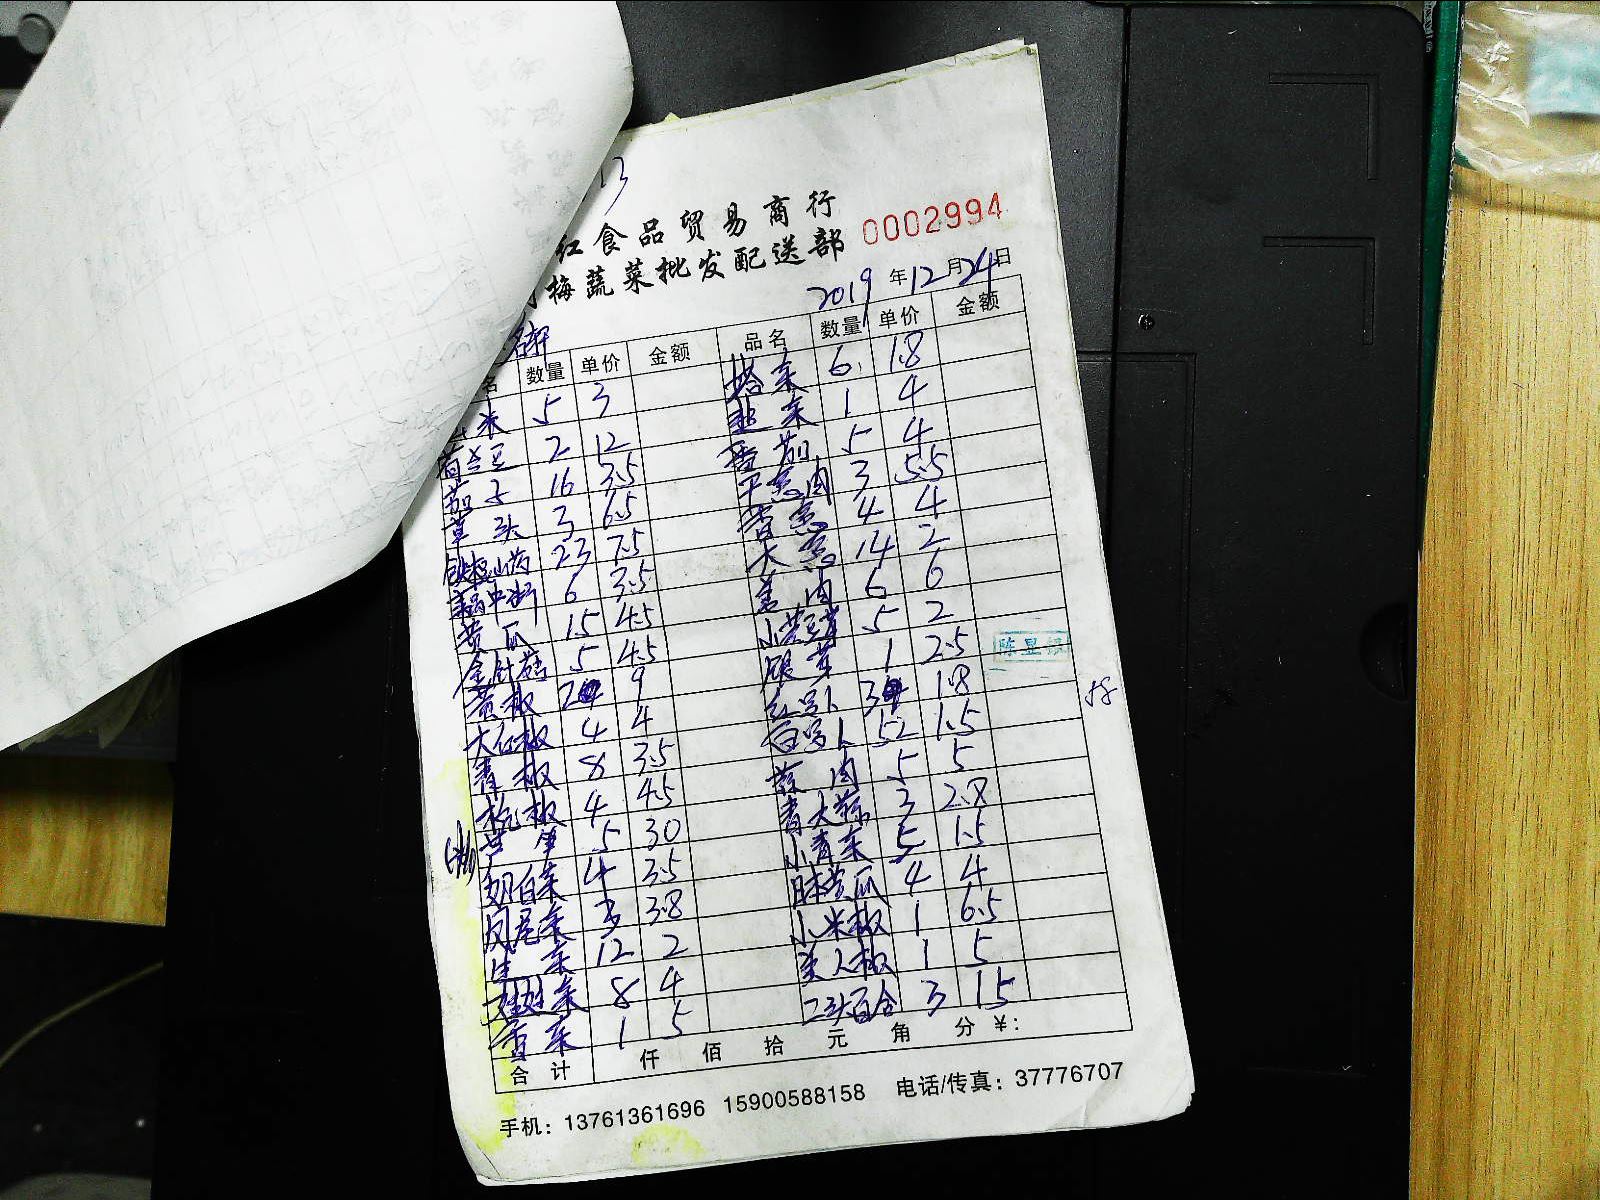 13
红食品贸易商行
梅蔬菜批发配送部 0002994
2019年12月24日
名轩
名 数量 单价 金额 品名 数量 单价 金额
米 5 3 塔菜 6 1.8
荷兰豆 2 12 韭菜 1 4
茄子 16 3.5 番茄 5 4
草头 3 6.5 干葱肉 3 5.5
铁棍山药 23 7.5 香葱 4 4
6 3.5 大葱 14 2
黄瓜 15 4.5 姜肉 6 6
金针菇 5 4.5 小黄豆芽 5 2
黄椒 2 9 银芽 1 2.5
大红椒 4 4 红萝卜 3 1.8
青椒 8 3.5 白萝卜 52 1.5
杭椒 4 4.5 蒜肉 5 5
芦笋 5 30 青大蒜 3 2.8
奶白菜 4 3.5 小青菜 5 1.5
凤尾菜 3 3.8 黄瓜 4 4
生菜 12 2 小米椒 1 6.5
娃娃菜 8 4 美人椒 1 5
香菜 1 5 二头百合 3 15
合计 仟 佰 拾 元 角 分 ¥:
手机：13761361696 15900588158 电话/传真：37776707